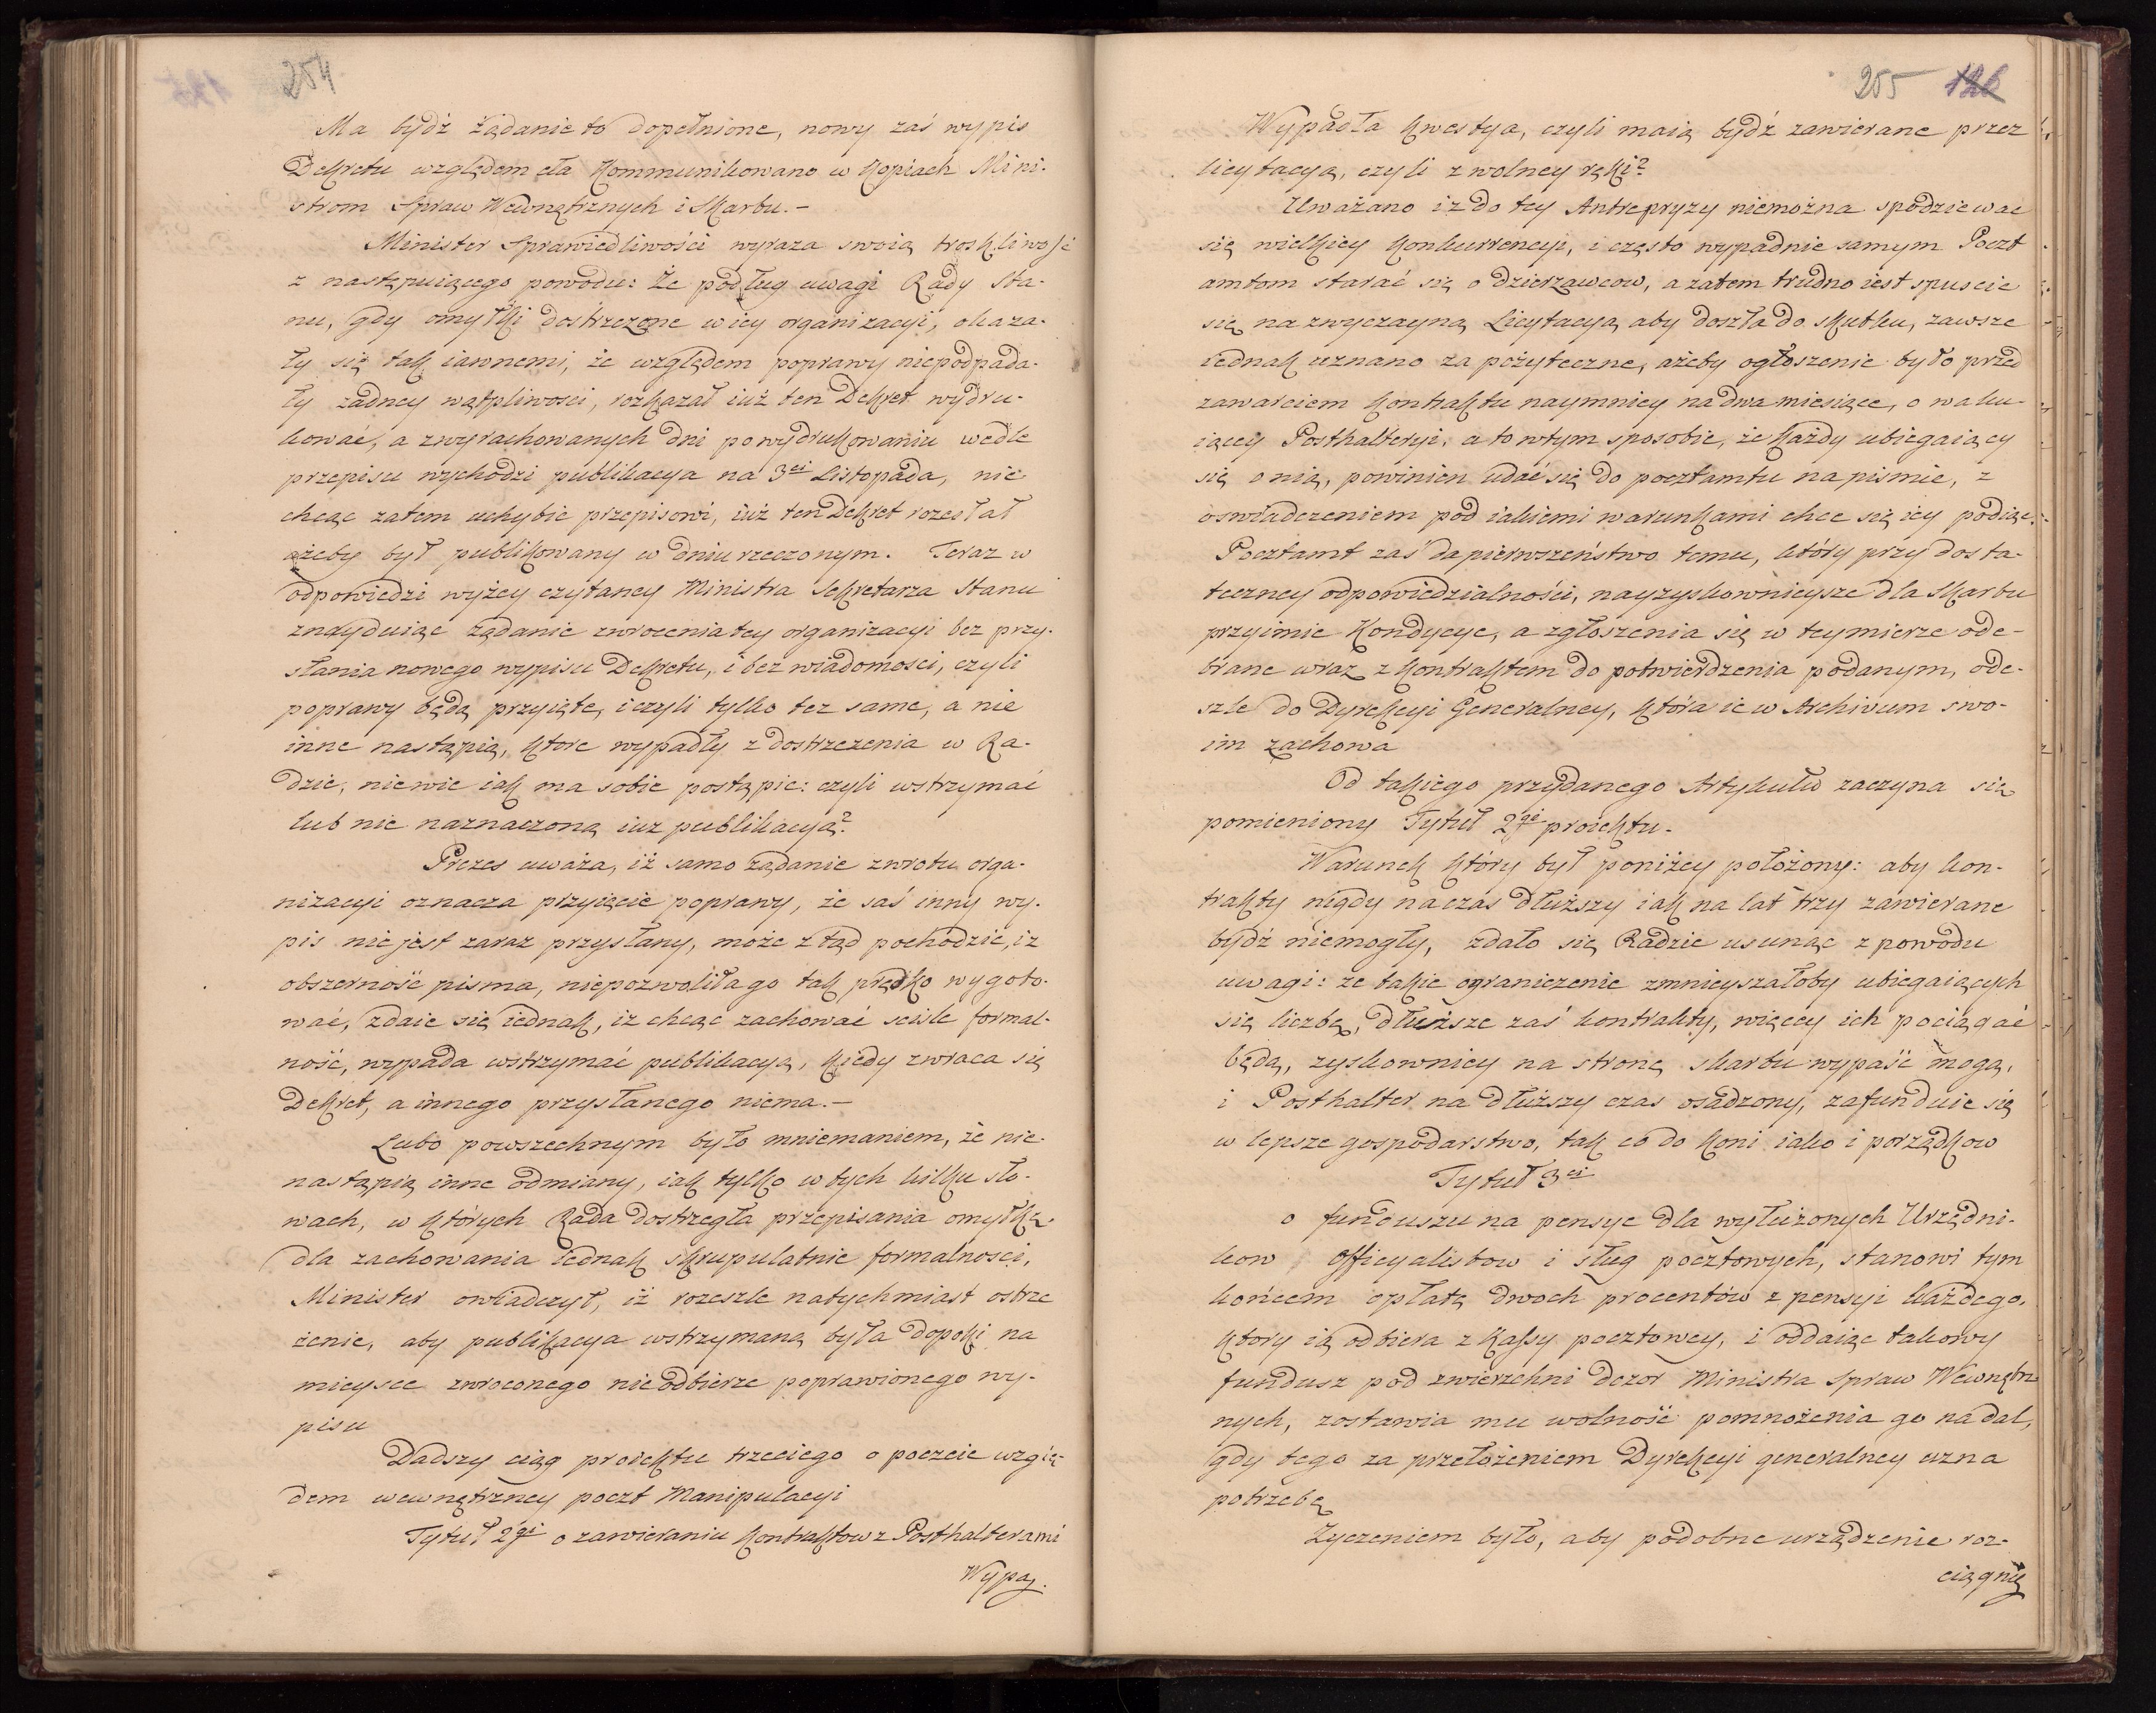 254
Ma bydź żądanie to dopełnione, nowy zaś wypis
Dekretu względem cła kommunikowano w kopiach Mini-
strom Spraw Wewnętrznych i Skarbu.—
Minister Sprawiedliwości wyraza swoią troskliwość
z następuiącego powodu: Że podług uwagi Rady Sta-
nu, gdy omyłki dostrzezone w icy organizacyi, okaza-
ły się tak iawnemi, że względem poprawy niepodpada-
ły żadney wątpliwosci, rozkazał iuż ten Dekret wydru-
kować, a z wyrachowanych dni po wydrukowaniu wedle
przepisu wychodzi publikacya na 3ci Listopada, nie
chcąc zatem uchybic przepisowi, iuż ten Dekret rozesłał
ażeby był publikowany w dniu rzeczonym. Teraz w
odpowiedzi wyżey czytaney Ministra Sekretarza Stanu
znayduiąc żądanie zwrocenia tey organizacyi bez przy-
słania nowego wypisu Dekretu, i bez wiadomosci, czyli
poprawy będą przyięte, i czyli tylko tez same, a nie
inne nastąpią, ktore wypadły z dostrzezenia w Ra-
dzie, nie wie iak ma sobie postąpic: czyli wstrzymać
lub nie naznaczoną iuz publikacyą?
Prezes uważa, iż samo ządanie zwrotu orga-
nizacyi oznacza przyięcie poprawy, że saś inny wy-
pis nie jest zaraz przysłany, może z tąd pochodzić, iz
obszerność pisma, niepozwoliła go tak prędko wygoto-
wać, zdaie się iednak, iz chcąc zachować scisle formal-
ność, wypada wstrzymać publikacyą, kiedy zwraca się
Dekret, a innego przysłanego niema.—
Lubo powszechnym było mniemaniem, że nie-
nastąpią inne odmiany, iak tylko w tych kilku sło-
wach, w których Rada dostrzegła przepisania omyłkę.
dla zachowania iednak skrupulatnie formalnosci,
Minister owiadczył, iż rozeszle natychmiast ostrze
żenie, aby publikacya wstrzymaną była dopoki na
mieysce zwroconego nieodbierze poprawionego wy-
pisu
Dadszy ciąg proiektu trzeciego o poczcie wzglę-
dem wewnętrzney poczt Manipulacyi
Tytuł 2gi o zawieraniu kontraktow z Posthalterami
Wypa
255 126
Wypadła kwestya, czyli maią bydź zawierane przez
licytacyą, czyli z wolney ręki?
Uważano iz do tey Antrepryzy niemożna spodziewac
się wielkiey konkurrencyi, i często wypadnie samym Poczt
amtom starać się o dzierzawcow, a zatem trudno iest spuscic
się na zwyczayną Licytacyą aby doszła do skutku, zawsze
iednak uznano za pożyteczne, ażeby ogłoszenie było przed
zawarciem kontraktu naymniey na dwa miesiące, o waku-
iącey Posthalteryi, a to wtym sposobie, że każdy ubiegaiący
się o nią, powinien udać się do pocztamtu na pismie, z
oswiadczeniem pod iakiemi warunkami chce się iey podiąć.
Pocztamt zaś da pierwszeństwo temu, który przy dosta-
teczney odpowiedzialności, nayzyskownieysze dla Skarbu
przyimie Kondycye, a zgłoszenia się w teymierze ode-
brane wraz z kontraktem do potwierdzenia podanym, ode-
szle do Dyrekcyi Generalney, która ie w Archivum swo-
im zachowa
Od takiego przydanego Artykułu zaczyna się
pomieniony Tytuł 2gi proiektu.
Warunek który był poniżey położony: aby kon-
trakty nigdy na czas dłuższy iak na lat trzy zawierane
bydź niemogły, zdało się Radzie usunąc z powodu
uwagi: ze takie ograniczenie zmnieyszałoby ubiegaiących
się liczbę, dłuższe zaś kontrakty, więcey ich pociągać
będą, zyskowniey na stronę skarbu wypaść mogą,
i Posthalter na dłuższy czas osadzony, zafunduie się
w lepsze gospodarstwo, tak co do koni iako i porządkow
Tytuł 3ci
o funduszu na pensye dla wyłużonych Urzędni-
kow Officyalistow i sług pocztowych, stanowi tym
końcem opłatę dwoch procentów z pensyi każdego,
ktory ią odbiera z kassy pocztowey, i oddaiąc takowy
fundusz pod zwierzchni dozor Ministra Spraw Wewnętrz
nych, zostawia mu wolność pomnożenia go na dal,
gdy tego za przełożeniem Dyrekcyi generalney uzna
potrzebę
Życzeniem było, aby podobne urządzenie roz-
ciągnię